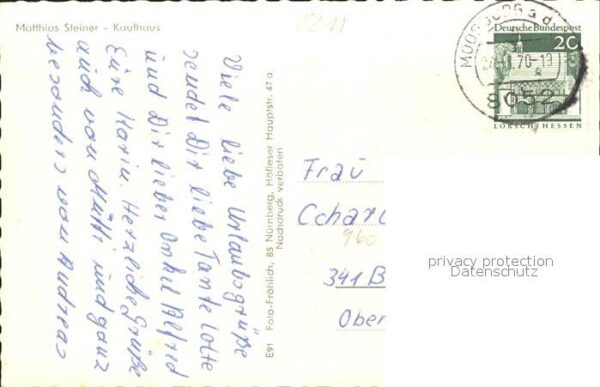 Matthias Steiner - Kaufhaus
Viele liebe Urlaubsgrüße
sendet Dir liebe Tante Lotte
und Dir lieber Onkel Alfred
Eure Karin. Herzliche Grüße
auch von Mutti und ganz
besonders von Andreas
E91 Foto-Fröhlich, 85 Nürnberg, Höfleser Hauptstr. 47a
Nachdruck verboten
Deutsche Bundespost
20
LORSCH/HESSEN
70-19
a
8052
Frau
960
341 B
Ober
privacy protection
Datenschutz